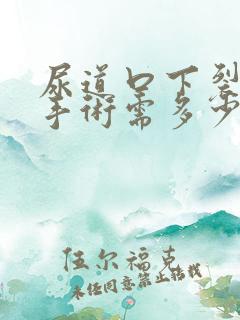 尿道口下裂
手術需多少
伍尔福克
未经同意禁止转载